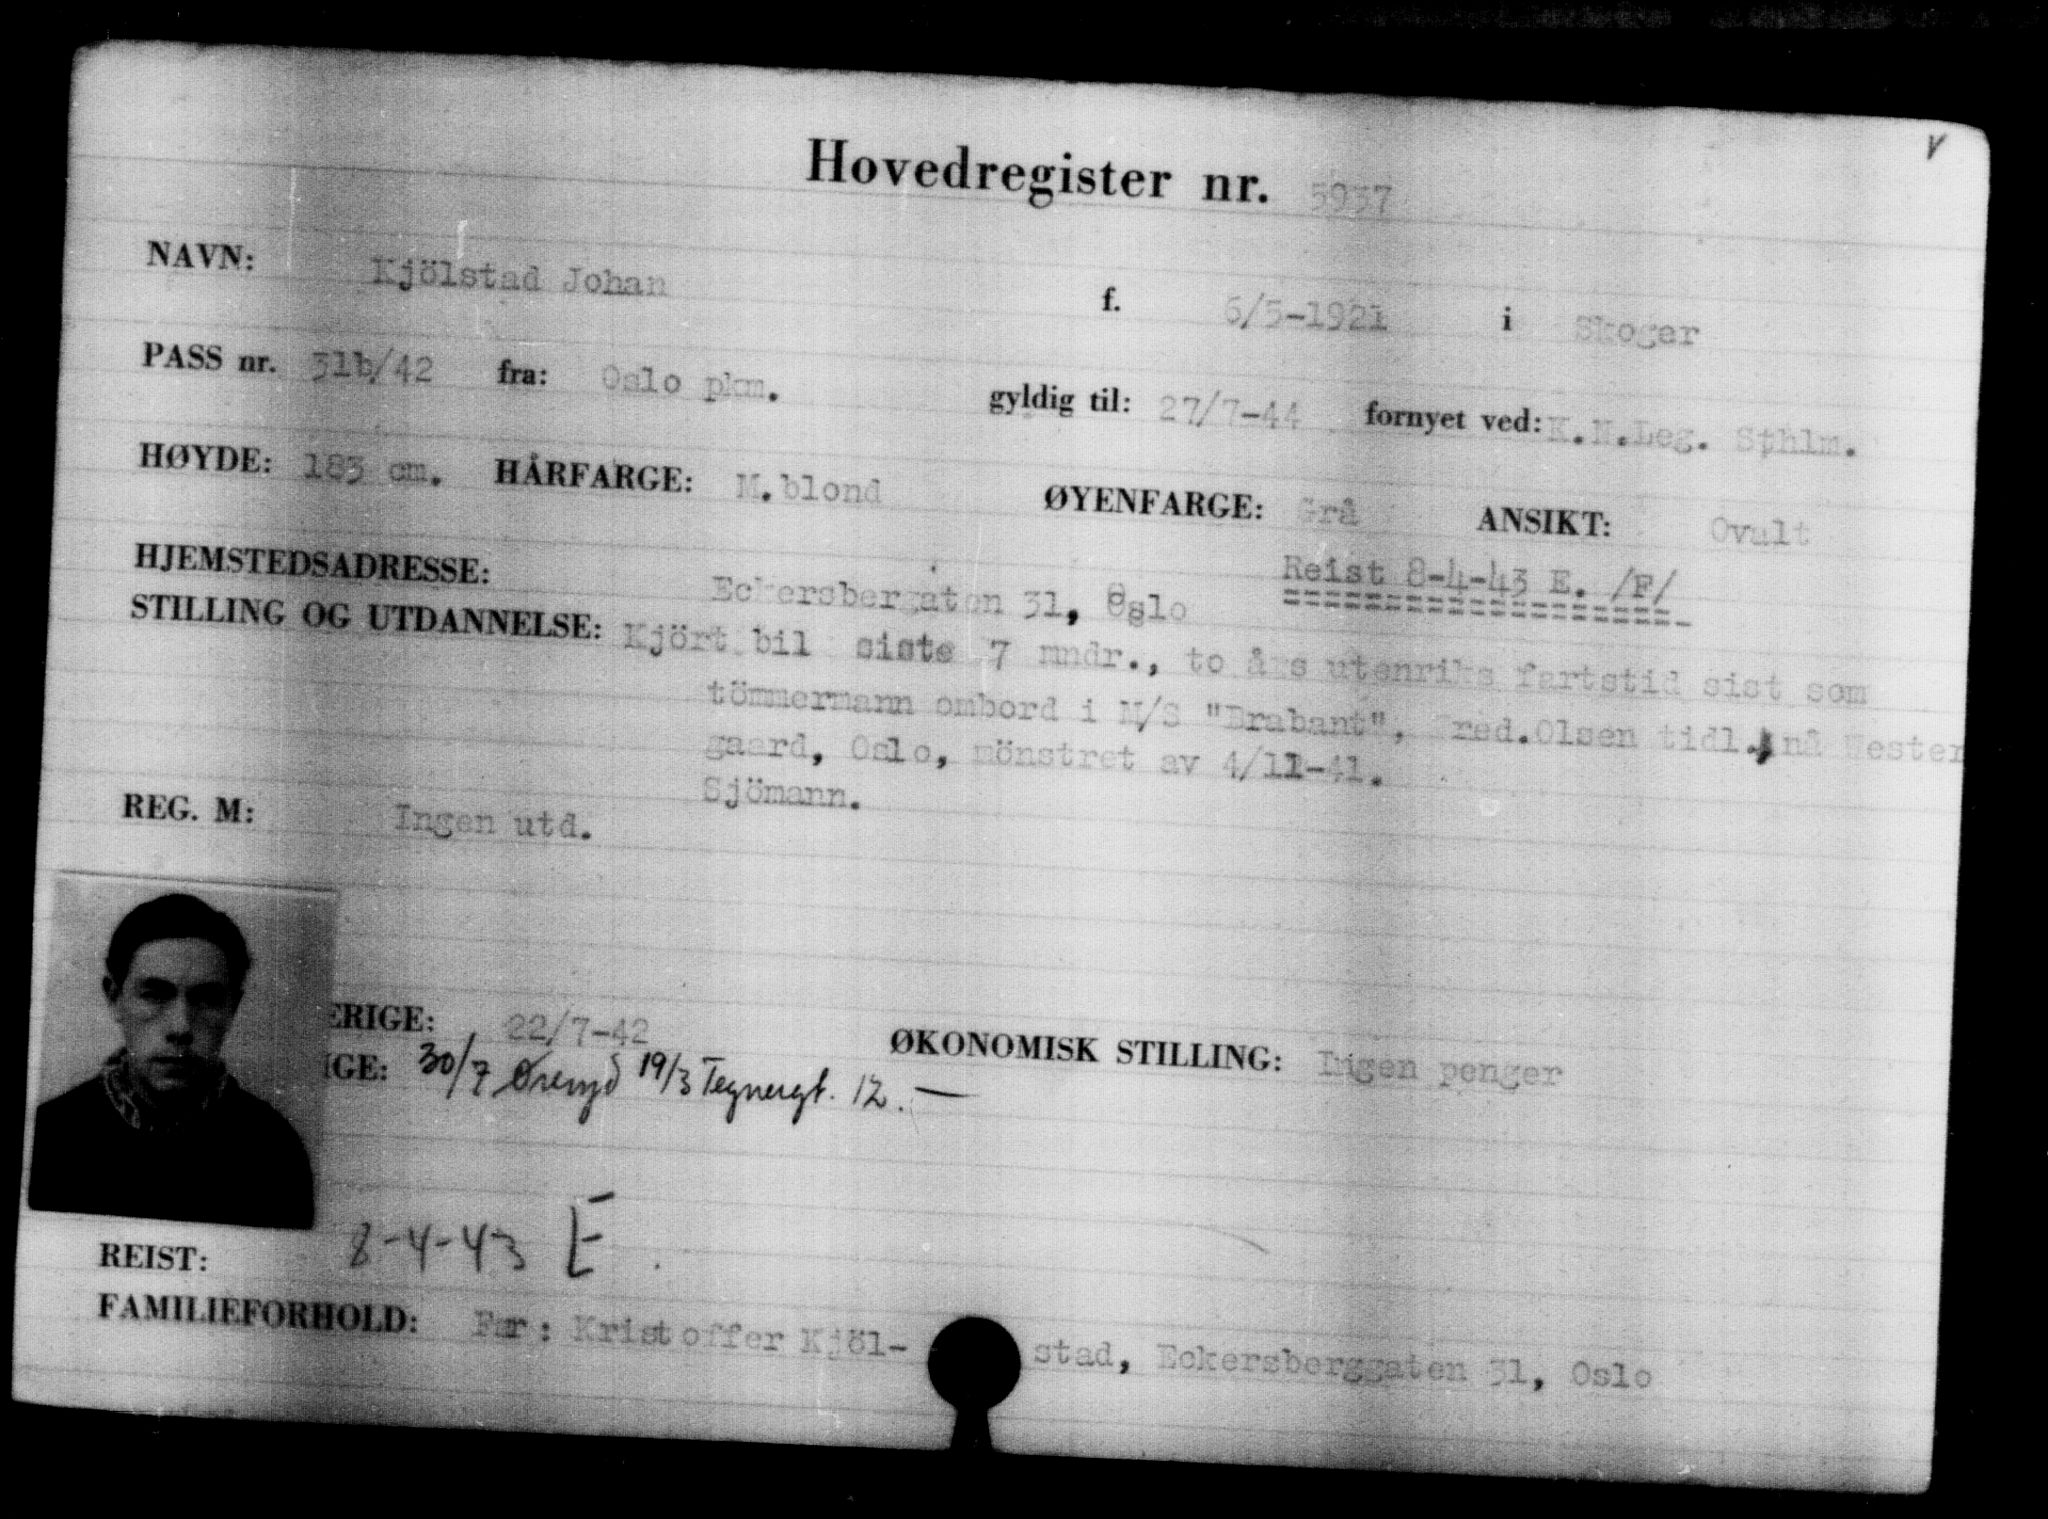 V
Hovedregister nr. 5937
NAVN: Kjölstad Johan f. 6/5-1921 i Skoger
PASS nr. 31b/42 fra: Oslo pkm. gyldig til: 27/7-44 fornyet ved: K.N.Leg. Sthlm.
HØYDE: 183 cm. HÅRFARGE: M.blond ØYENFARGE: Grå ANSIKT: Ovalt
HJEMSTEDSADRESSE: Eckersbergaten 31, Oslo Reist 8-4-43 E. /F/
STILLING OG UTDANNELSE: Kjört bil siste 7 mndr., to års utenriks fartstid sist som
tömmermann ombord i M/S "Brabant", Fred.Olsen tidl., nå Wester
gaard, Oslo, mönstret av 4/11-41.
Sjömann.
REG. M: Ingen utd.
ERIGE: 22/7-42 ØKONOMISK STILLING: Ingen penger
IGE: 30/7 Öreryd 19/3 Tegnergt. 12. —
REIST: 8-4-43 E
FAMILIEFORHOLD: Far: Kristoffer Kjöl- stad, Eckersberggaten 31, Oslo